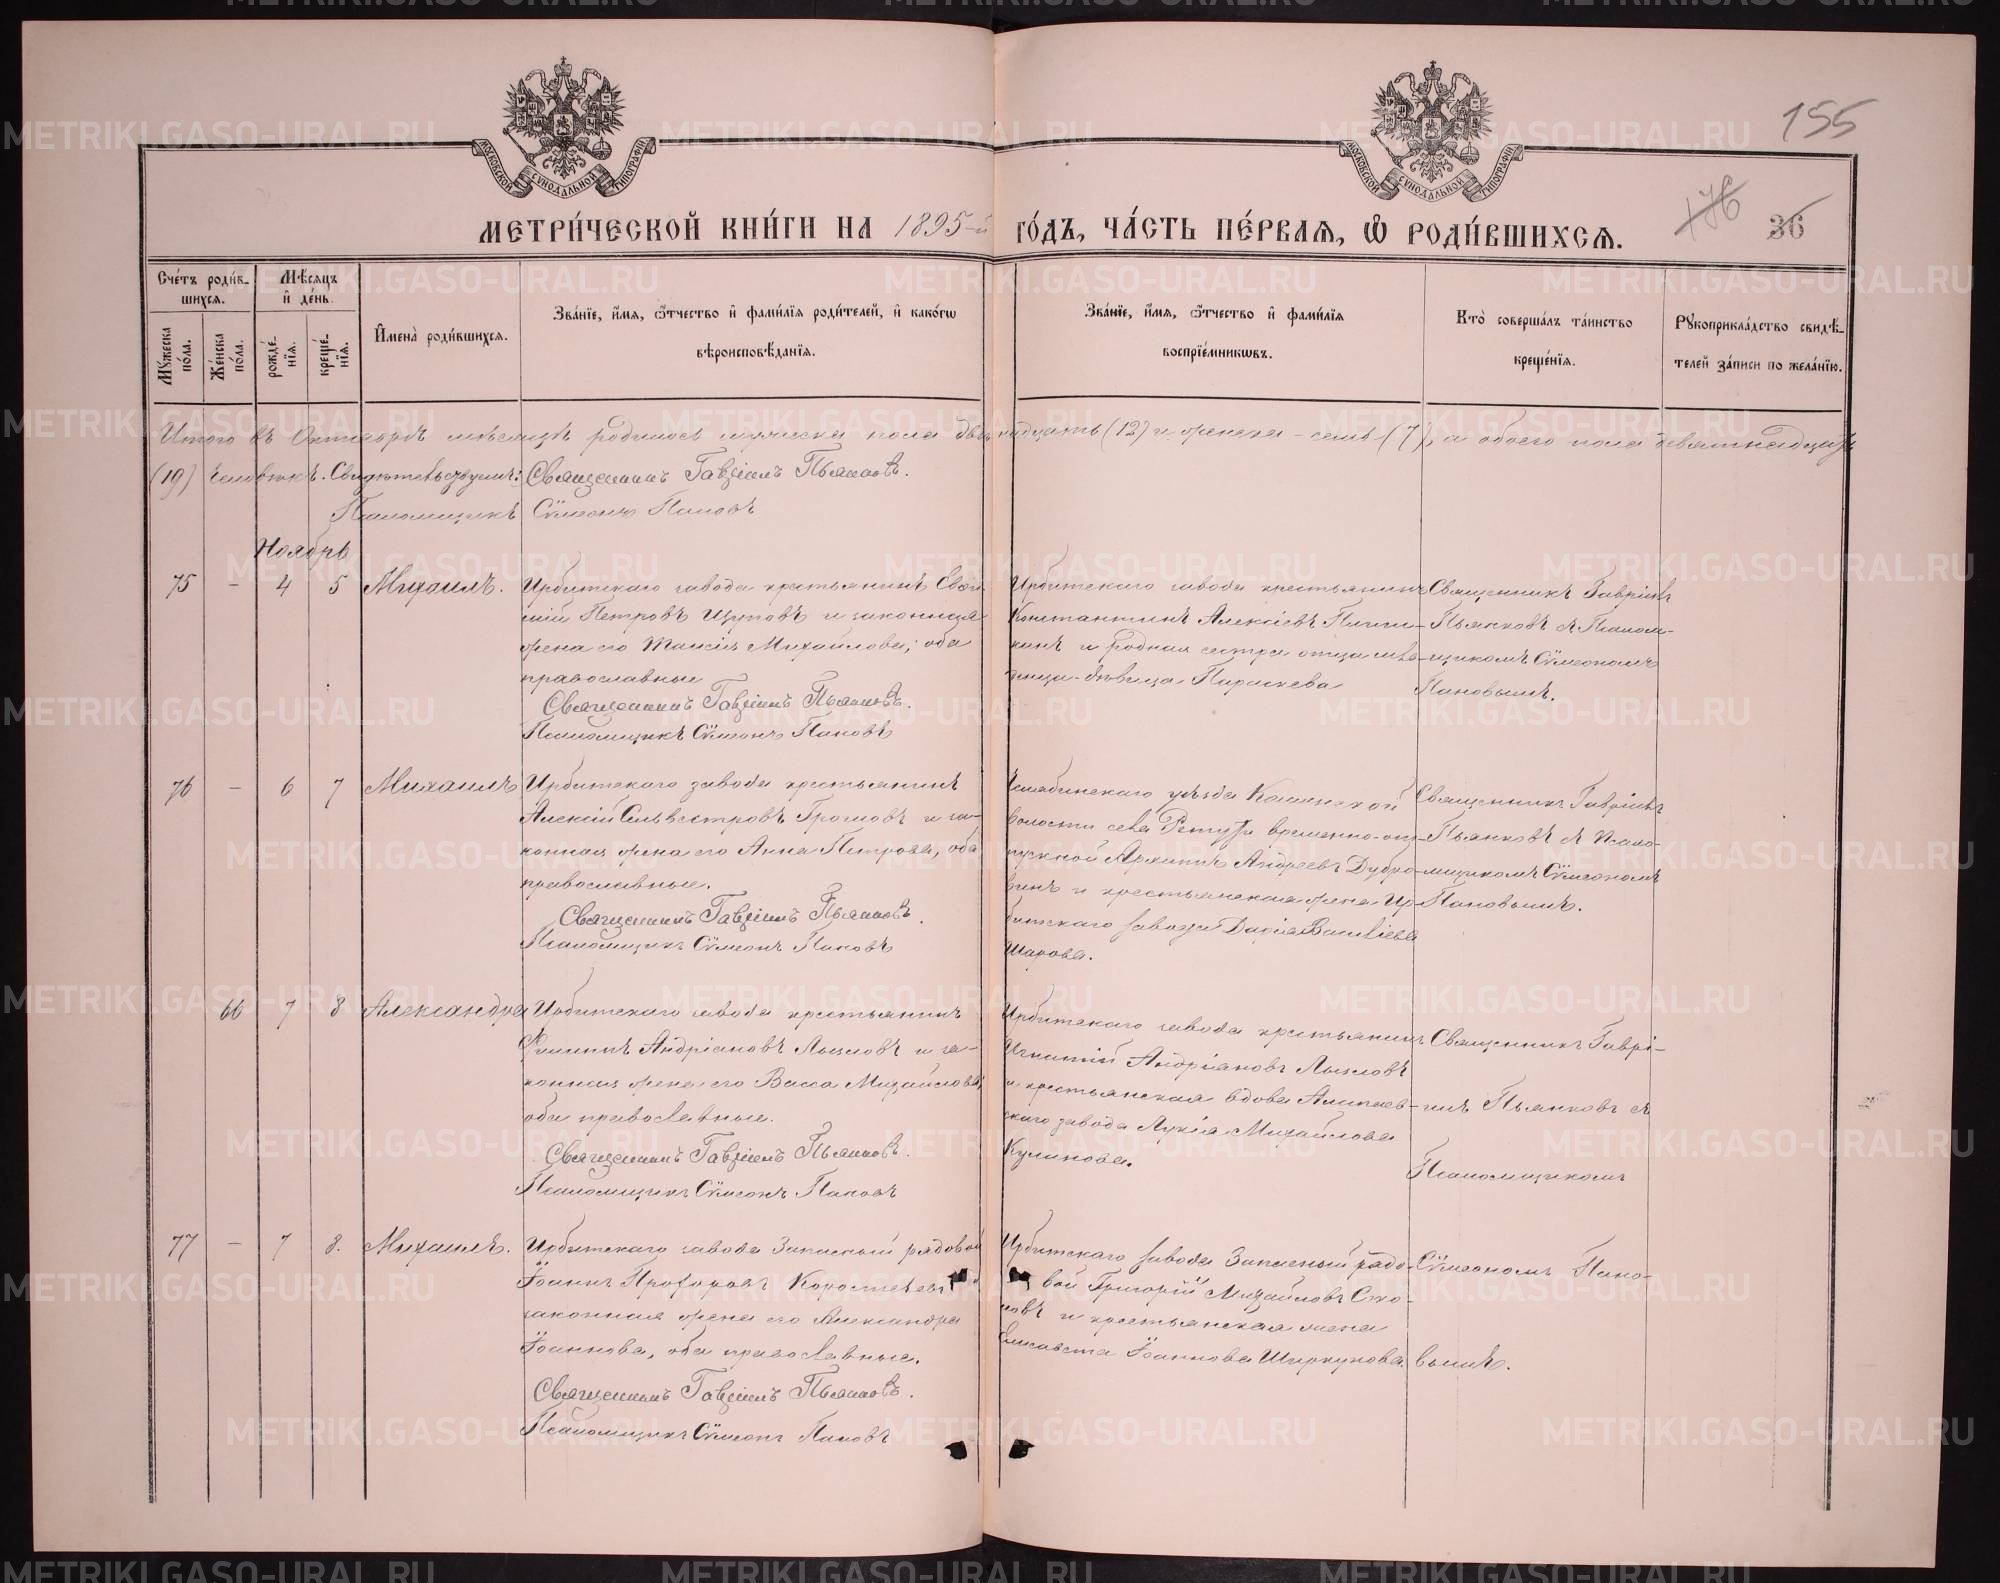 155
176
36
МОСКОВСКОЙ СУНОДАЛЬНОЙ ТИПОГРАФІИ
МОСКОВСКОЙ СУНОДАЛЬНОЙ ТИПОГРАФІИ
МЕТРИ́ЧЕСКОЙ КНИ́ГИ НА 1895-й ГО́ДЪ, ЧА́СТЬ ПЕ́РВАѦ, Ѡ РОДИ́ВШИХСѦ.
Сче́тъ роди́в-
шихсѧ.
Мꙋжеска по́ла.
Же́нска по́ла.
Мѣ́сѧцъ
и҆ де́нь.
рожде́-
нїѧ.
креще́-
нїѧ.
И҆мена̀ роди́вшихсѧ.
Зва́нїе, и҆́мѧ, ѻ҆́тчество и҆ фами́лїѧ роди́телей, и҆ како́гѡ
вѣроисповѣ́данїѧ.
Зва́нїе, и҆́мѧ, ѻ҆́тчество и҆ фами́лїѧ
воспрїе́мникѡвъ.
Кто̀ соверша́лъ та́инство
креще́нїѧ.
Рꙋкоприкла́дство свидѣ́-
телей за́писи по жела́нїю.
Итого въ Октябрѣ мѣсяцѣ родилось мужеска пола двѣнадцать (12) и женска – семь (7), а обоего пола девятнадцать
(19) человѣкъ. Свидѣтельствуемъ: Священникъ Гавріилъ Пьянковъ.
Псаломщикъ Сѵмеонъ Поповъ
Ноябрь
75 – 4 5 Михаилъ.
Ирбитскаго завода крестьянинъ Евси-
гній Петровъ Щуповъ и законная
жена его Таисія Михайлова; оба
православные
Священникъ Гавріилъ Пьянковъ.
Псаломщикъ Сѵмеонъ Поповъ
Ирбитскаго завода крестьянинъ
Константинъ Алексіевъ
и родная сестра отца мла-
денца дѣвица Параскева
Священникъ Гавріилъ
Пьянковъ съ Псалом-
щикомъ Сѵмеономъ
Поповымъ.
76 – 6 7 Михаилъ
Ирбитскаго завода крестьянинъ
Алексій Сильвестровъ Громовъ и за-
конная жена его Анна Петрова, оба
православные.
Священникъ Гавріилъ Пьянковъ.
Псаломщикъ Сѵмеонъ Поповъ
Челябинскаго уѣзда
волости села временно-от-
пускной Архипъ Андреевъ Дубро-
винъ и крестьянская жена Ир-
битскаго завода Дарія Василіева
Шарова.
Священникъ Гавріилъ
Пьянковъ съ Псало-
мщикомъ Сѵмеономъ
Поповымъ.
66 7 8 Александра
Ирбитскаго завода крестьянинъ
Филиппъ Андріановъ Лызловъ и за-
конная жена его Васса Михайлова,
оба православные.
Священникъ Гавріилъ Пьянковъ.
Псаломщикъ Сѵмеонъ Поповъ
Ирбитскаго завода крестьянинъ
Игнатій Андріановъ Лызловъ
и крестьянская вдова Алапаев-
скаго завода Лукія Михайлова
Куликова.
Священникъ Гаврі-
илъ Пьянковъ съ
Псаломщикомъ
77 – 7 8. Михаилъ.
Ирбитскаго завода Запасный рядовой
Іоаннъ Прохоровъ Коростелевъ и
законная жена его Александра
Іоаннова, оба православные.
Священникъ Гавріилъ Пьянковъ.
Псаломщикъ Сѵмеонъ Поповъ
Ирбитскаго завода Запасный рядо-
вой Григорій Михайловъ Ско-
и крестьянская жена
Елисавета Іоаннова
Сѵмеономъ Попо-
вымъ.
METRIKI.GASO-URAL.RU